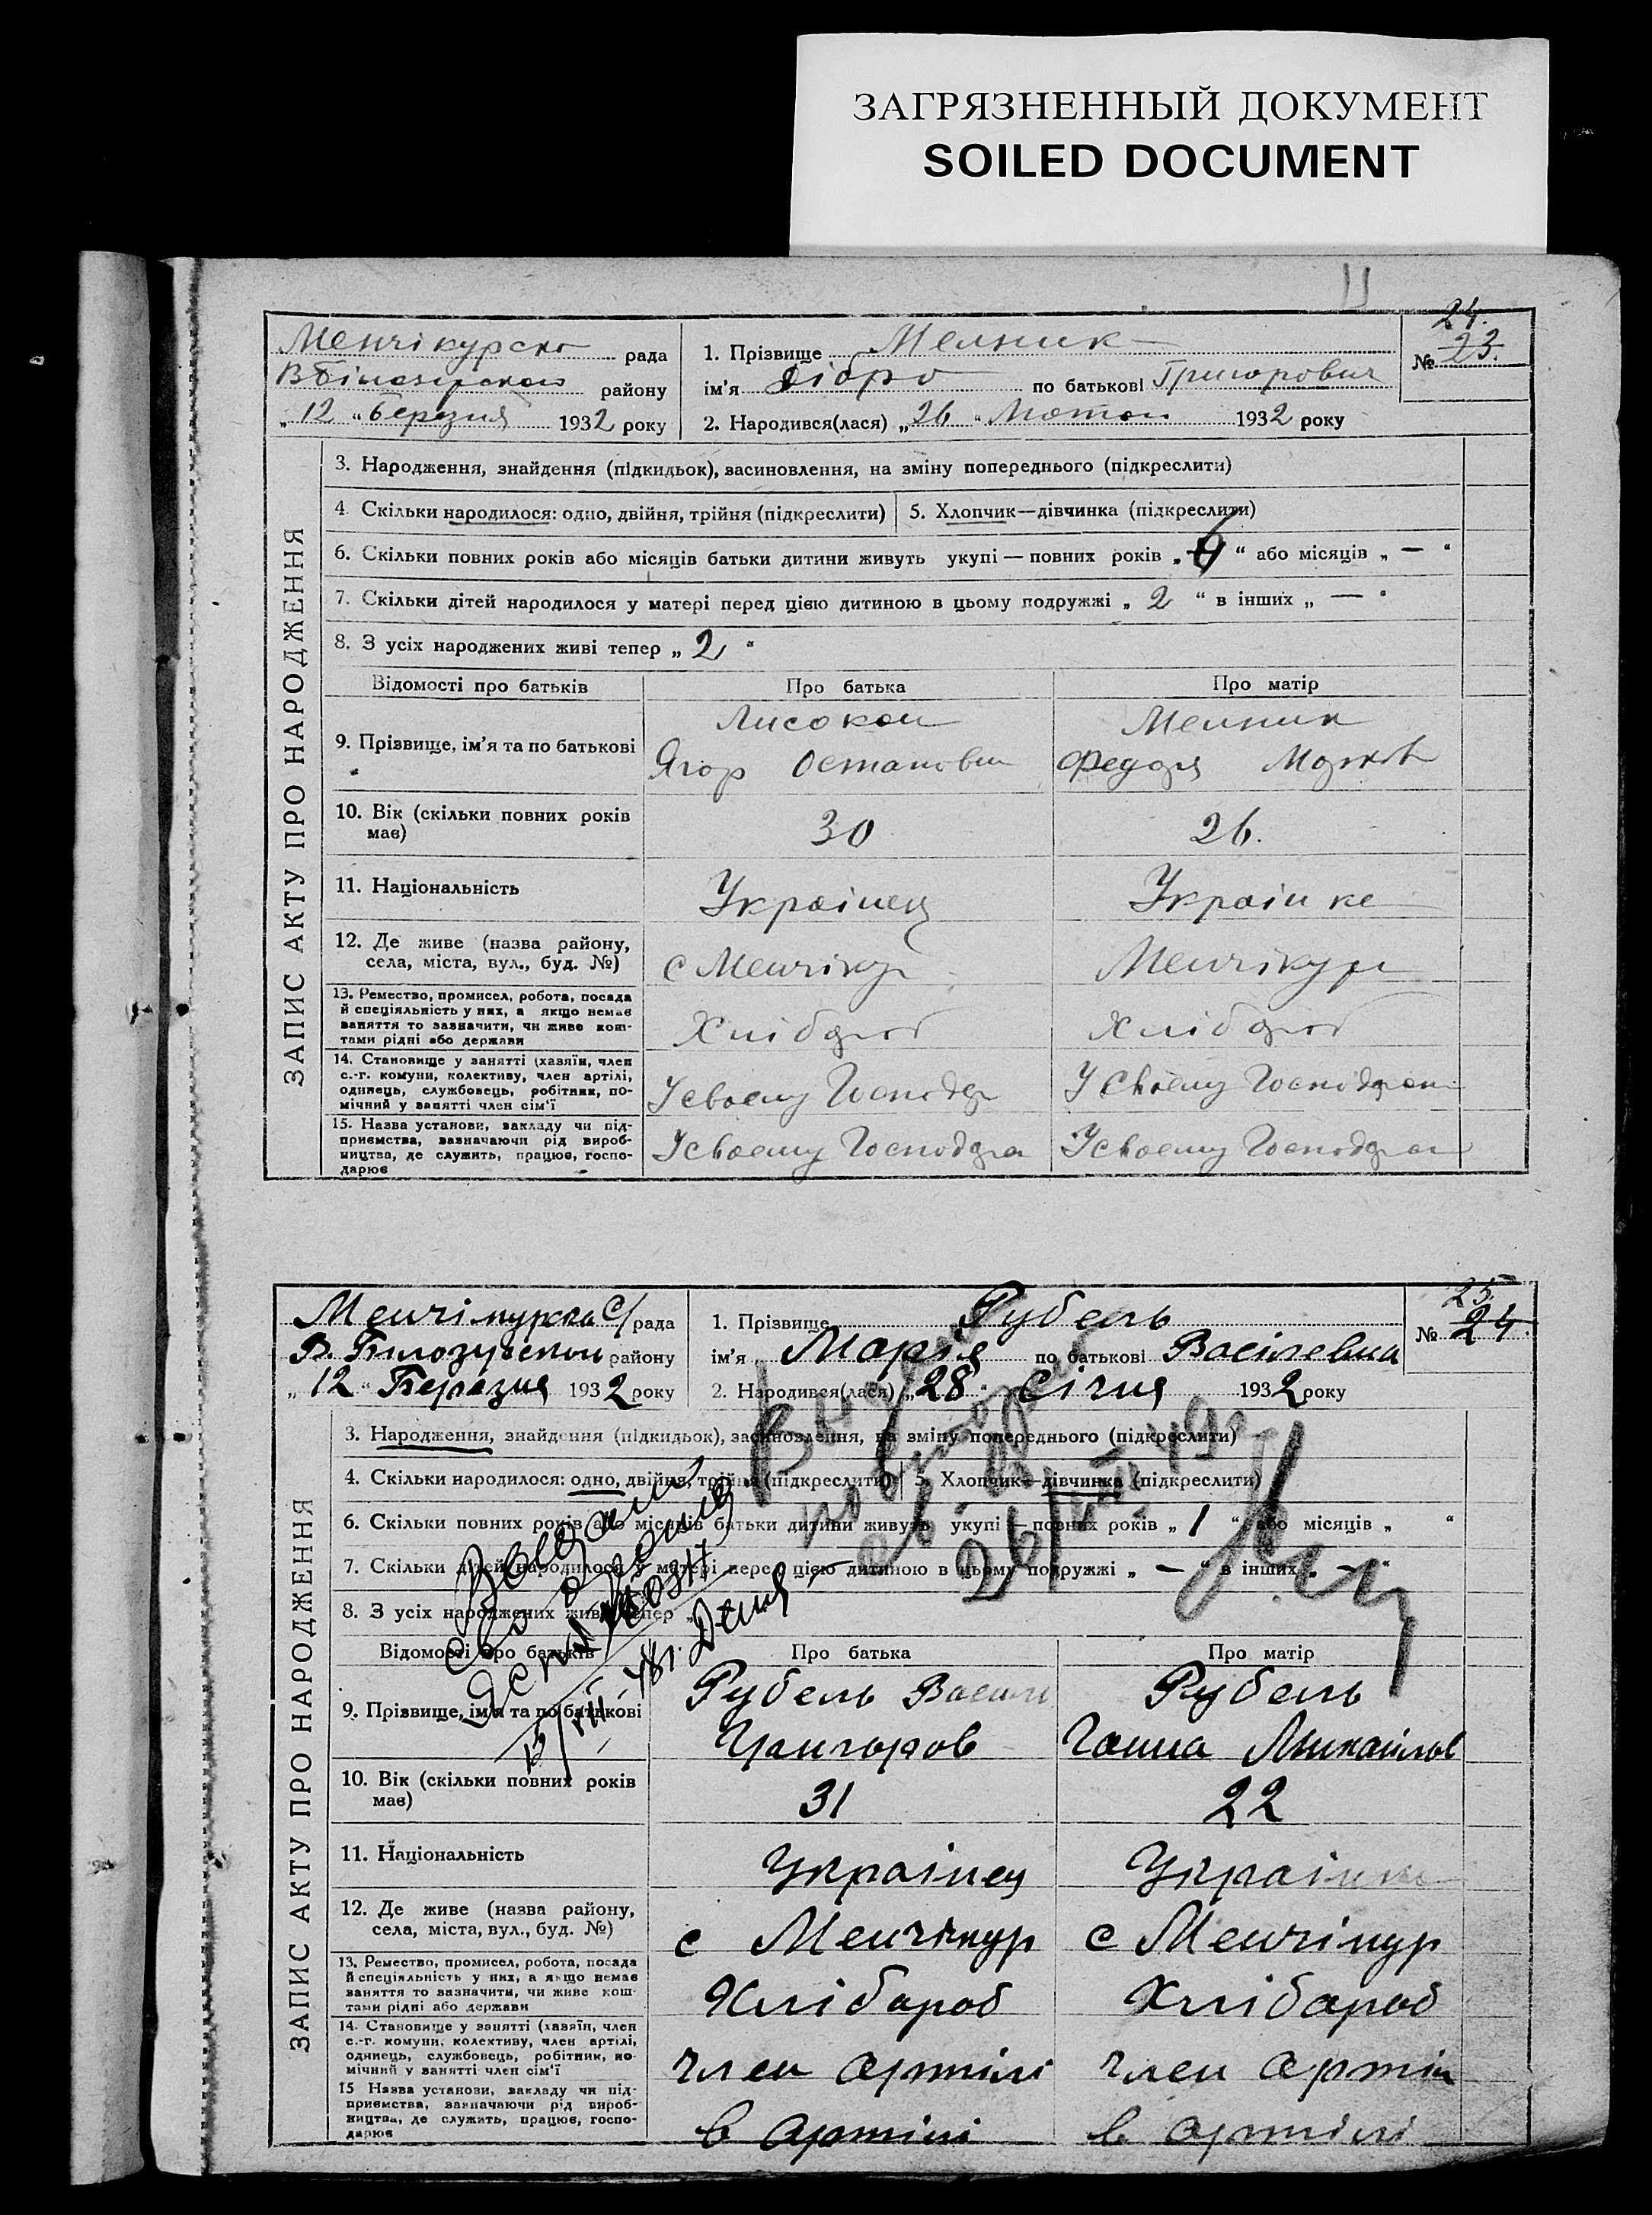 ЗАГРЯЗНЕННЫЙ ДОКУМЕНТ
SOILED DOCUMENT
11
ЗАПИС АКТУ ПРО НАРОДЖЕННЯ
Менчікурско рада
В Білозірского району
„12“ березня 1932 року
1. Прізвище Мелник
ім'я по батькові Григорович
2. Народився(лася) „26“ Лютого 1932 року
24.
№ 23.
3. Народження, знайдення (підкидьок), засиновлення, на зміну попереднього (підкреслити)
4. Скільки народилося: одно, двійня, трійня (підкреслити)
5. Хлопчик—дівчинка (підкреслити)
6. Скільки повних років або місяців батьки дитини живуть укупі — повних років „6“ або місяців „—“
7. Скільки дітей народилося у матері перед цією дитиною в цьому подружжі „2“ в інших „—“
8. З усіх народжених живі тепер „2“
Відомості про батьків Про батька Про матір
9. Прізвище, ім'я та по батькові
Лисокон Мелник
Ягор Остапович Федора Марков
10. Вік (скільки повних років має) 30 26.
11. Національність Українец Українке
12. Де живе (назва району, села, міста, вул., буд. №) с Менчікур Менчікури
13. Ремество, промисел, робота, посада й спеціяльність у них, а якщо немає заняття то зазначити, чи живе коштами рідні або держави Хлібороб Хлібороб
14. Становище у занятті (хазяїн, член с.-г. комуни, колективу, член артілі, одинець, службовець, робітник, помічний у занятті член сім'ї У своему Господар У своему Господар
15. Назва установи, закладу чи підприємства, зазначаючи рід виробництва, де служить, працює, господарює У своему Господар У своему Господар
ЗАПИС АКТУ ПРО НАРОДЖЕННЯ
Менчікурска С/рада
В. Білозирском району
„12“ Березня 1932 року
1. Прізвище Рубель
ім'я Марія по батькові Васілевна
2. Народився(лася) „28“ Січня 1932 року
25.
№ 24.
3. Народження, знайдення (підкидьок), засиновлення, на зміну попереднього (підкреслити)
4. Скільки народилося: одно, двійня, трійня (підкреслити)
5. Хлопчик—дівчинка (підкреслити)
6. Скільки повних років або місяців батьки дитини живуть укупі — повних років „1“ або місяців „ “
7. Скільки дітей народилося у матері перед цією дитиною в цьому подружжі „—“ в інших „—“
8. З усіх народжених живі тепер „
Відомості про батьків Про батька Про матір
9. Прізвище, ім'я та по батькові
Рубель Васили Рубель
Григоров Ганна Михайлов
10. Вік (скільки повних років має) 31 22
11. Національність Українец Українка
12. Де живе (назва району, села, міста, вул., буд. №) с Менчікур с Менчікур
13. Ремество, промисел, робота, посада й спеціяльність у них, а якщо немає заняття то зазначити, чи живе коштами рідні або держави Хлібароб Хлібароб
14. Становище у занятті (хазяїн, член с.-г. комуни, колективу, член артілі, одинець, службовець, робітник, помічний у занятті член сім'ї член артілі член артіли
15 Назва установи, закладу чи підприємства, зазначаючи рід виробництва, де служить, працює, господарює в артілі в артілі